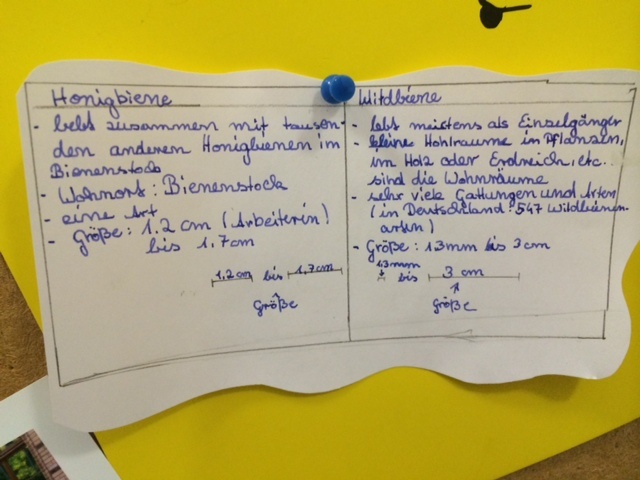 Honigbiene
- lebt zusammen mit tausen-
den anderen Honigbienen im
Bienenstock
- Wohnort: Bienenstock
- eine Art
- Größe: 1,2 cm (Arbeiterin)
bis 1,7cm
1,2 cm bis 1,7cm
Größe
Wildbiene
- lebt meistens als Einzelgänger
- kleine Hohlräume in Pflanzen,
im Holz oder Erdreich, etc..
sind die Wohnräume
- sehr viele Gattungen und Arten
(in Deutschland: 547 Wildbienen-
arten)
- Größe: 1,3mm bis 3cm
1,3mm bis 3 cm
Größe